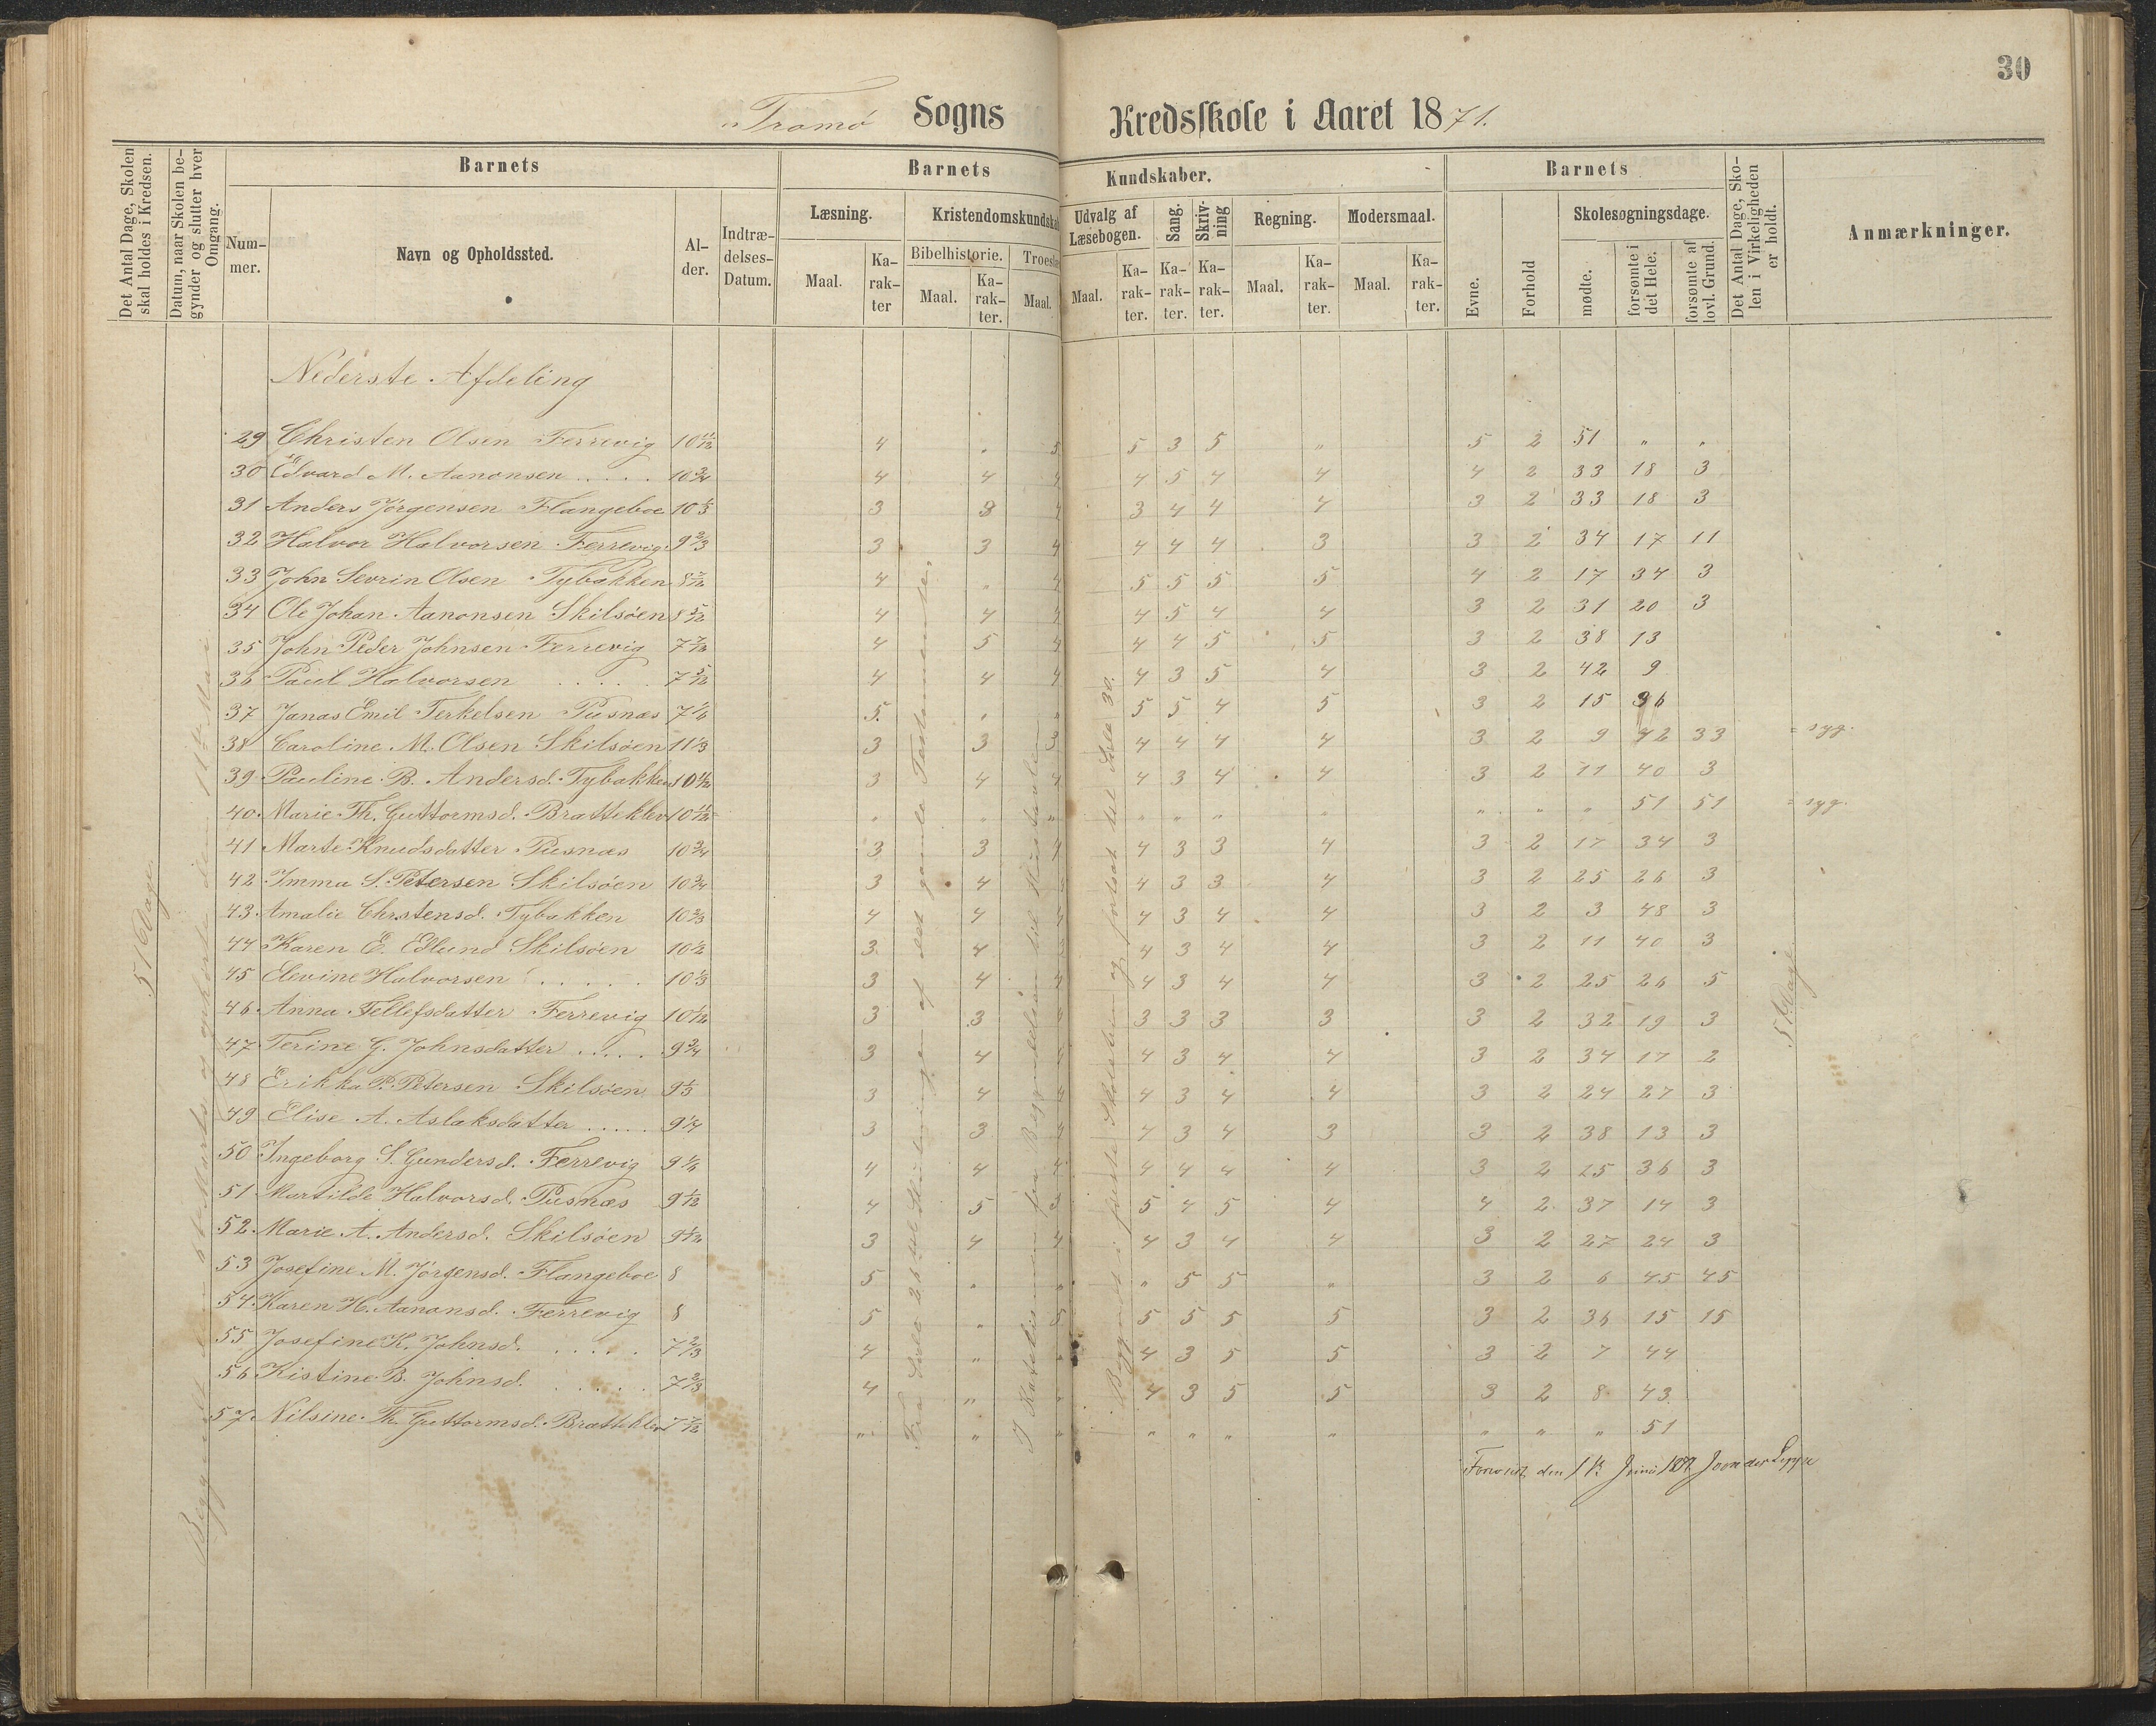 30
Tromø Sogns Kredsskole i Aaret 1871.
Det Antal Dage, Skolen skal holdes i Kredsen.
Datum, naar Skolen begynder og slutter hver Omgang.
Barnets
Nummer.
Navn og Opholdssted.
Alder.
Indtrædelses-Datum.
Barnets Kundskaber.
Læsning.
Maal. Karakter
Kristendomskundskab
Bibelhistorie.
Maal. Karakter.
Troes
Maal.
Udvalg af Læsebogen.
Maal. Karakter.
Sang. Karakter.
Skrivning Karakter.
Regning.
Maal. Karakter.
Modersmaal.
Maal. Karakter.
Barnets
Evne.
Forhold
Skolesøgningsdage.
mødte.
forsømte i det Hele.
forsømte af lovl. Grund.
Det Antal Dage, Skolen i Virkeligheden er holdt.
Anmærkninger.
Nederste Afdeling
29 Christen Olsen Færrevig 10 11/12 4 " 5 5 3 5 " 5 2 51 " "
30 Edvard M. Aanonsen ..... 10 3/4 4 4 4 4 5 4 4 4 2 33 18 3
31 Anders Jørgensen Flangeboe 10 1/3 3 3 4 3 4 4 4 3 2 33 18 3
32 Halvor Halvorsen Færrevig 9 2/3 3 3 4 4 4 4 3 3 2 34 17 11
33 John Sevrin Olsen Tybakken 8 7/12 4 " 4 5 5 5 5 4 2 17 34 3
34 Ole Johan Aanonsen Skilsøen 8 5/12 4 4 4 4 5 4 4 3 2 31 20 3
35 John Peder Johnsen Færrevig 7 7/12 4 5 4 4 4 5 5 3 2 38 13
36 Paul Halvorsen ..... 7 5/12 4 4 4 4 3 5 4 3 2 42 9
37 Janas Emil Terkelsen Pusnæs 7 1/6 5 " " 5 5 4 5 3 2 15 36
38 Caroline M. Olsen Skilsøen 11 1/3 3 3 3 4 4 4 4 3 2 9 42 33 = syg.
39 Pauline B. Andersd. Tybakken 10 11/12 3 4 4 4 3 4 4 3 2 11 40 3
40. Marie Th. Guttormsd. Bratteklev 10 11/12 " " " " " " " " " " 51 51 = syg.
41 Marte Knudsdatter Pusnæs 10 3/4 3 3 4 4 3 3 4 3 2 17 34 3
42 Imma S. Petersen Skilsøen 10 3/4 3 4 4 4 3 3 4 3 2 25 26 3
43. Amalie Chrstensd. Tybakken 10 2/3 4 4 4 4 3 4 4 3 2 3 48 3
44 Karen E. Edlund Skilsøen 10 1/2 3 4 4 4 3 4 4 3 2 11 40 3
45 Elevine Halvorsen ..... 10 1/3 3 4 4 4 3 4 4 3 2 25 26 5
46. Anna Tellefsdatter Færrevig 10 1/12 3 3 3 3 3 3 3 2 32 19 3
47. Terine G. Johnsdatter ..... 9 3/4 3 4 4 3 4 4 3 2 34 17 2
48 Erikka P. Petersen Skilsøen 9 1/3 3 4 4 4 3 4 4 3 2 24 27 3
49 Elise A. Aslaksdatter ..... 9 1/4 3 3 4 4 3 4 3 3 2 38 13 3
50 Ingeborg S. Gundersd. Færrevig 9 1/6 4 4 4 4 4 4 4 3 2 15 36 3
51 Martilde Halvorsd. Pusnæs 9 1/12 4 5 3 5 4 5 4 4 2 37 14 3
52. Marie A. Andersd. Skilsøen 9 1/12 3 4 4 4 3 4 4 3 2 27 24 3
53 Josefine M. Jørgensd. Flangeboe 8 5 " " " 5 5 " 3 2 6 45 45
54. Karen H. Aanonsd. Færrevig 8 5 " 5 5 5 5 5 3 2 36 15 15
55 Josefine K. Johnsd. ..... 7 2/3 4 " " 4 3 5 5 3 2 7 44
56 Kistine B. Johnsd. ..... 7 2/3 4 " " 4 3 5 5 3 2 8 43
57. Nilsine Th. Guttormsd. Bratteklev 7 7/12 " " " " " " " " " " 51
51 Dage
Fra Side 26 til Slutningen af det gamle Testamente.
I Katekismen fra Begyndelsen til
Begyndt i første Skoletrin og fortsat til Side 30.
51 Dage
den 1 Juni